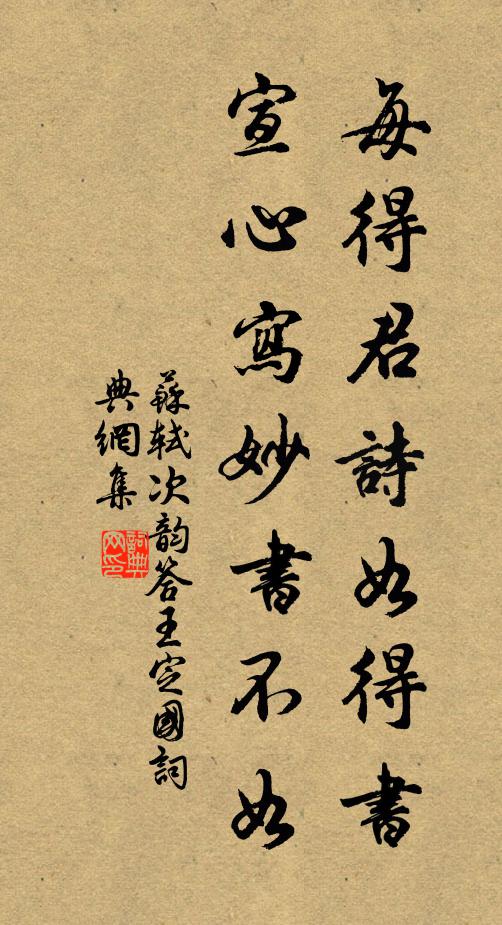 每得君詩如得書
宣心寫妙書不如
蘇軾次韵答王定國詞
典網集
詞典网印